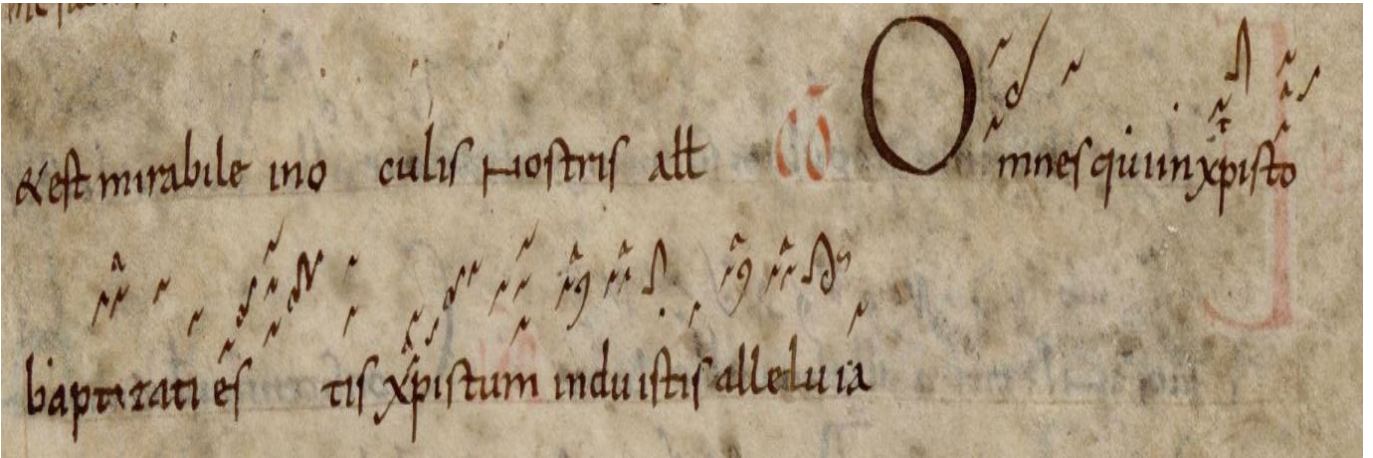 &est mirabile ino culis Nostris all co Omnes qui in xpisto
baptizati es tis xpistum induistis alleluia